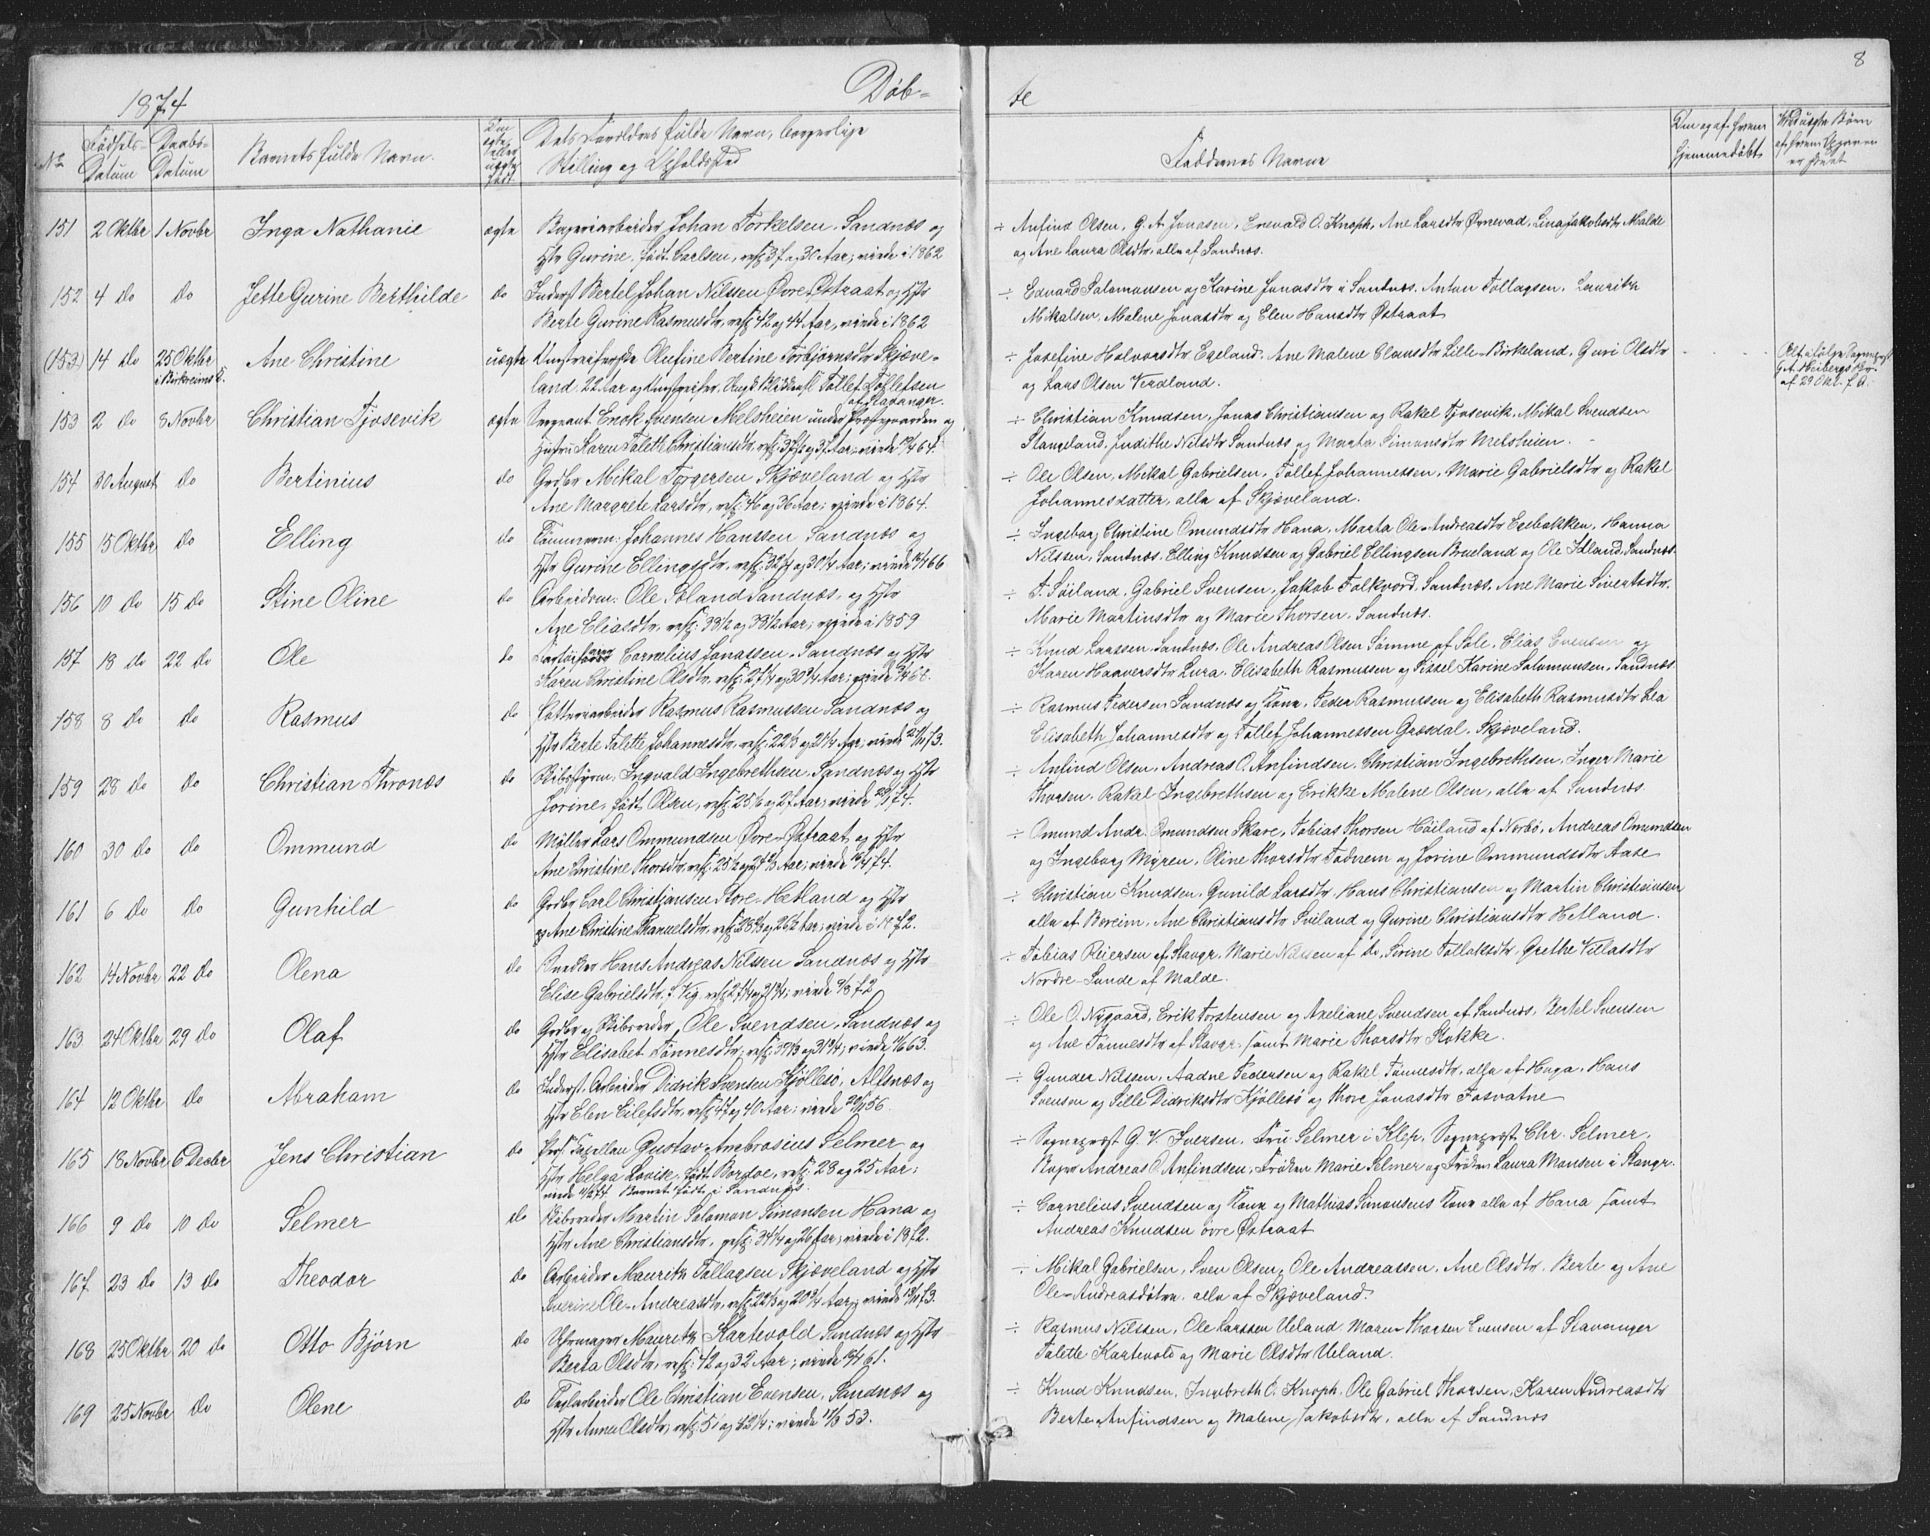 8
1874
Døb-
te
No
Fødsels-Datum
Daabs-Datum
Barnets fulde Navn.
Om ægte eller uægte født.
Dets Forældres fulde Navn, borgerlige
Stilling og Opholdssted
Faddernes Navne
Om og af hvem hjemmedøbt
151 2 Oktbr 1 Novbr Inga Nathanie ægte Bageriarbeider Johan Torkelsen, Sandnæs og
Hstr Gurine, født Carlsen, resp. 37 og 30 Aar; viede i 1862
÷ Anfind Olsen, G. A. Jonasen, Enevald O. Knoph, Ane Larsdtr Ørnevad, Lina Jakobsdtr Malde
og Ane Laura Olsdtr, alle af Sandnæs.
152 4 do do Jette Gurine Berthilde do Inderst Bertel Johan Nilssen Øvre-Østraat og Hstr
Berte Gurine Rasmusdtr, resp. 42 og 44 Aar, viede i 1862
÷ Edvard Salamonsen og Karine Jonasdtr i Sandnæs. Anton Tollagsen, Lauritz
Mikalsen, Malene Jonasdtr og Elen Hansdtr Østraat
(153) 14 do 25 Oktbr i Birkreims K. Ane Christine uægte Olufine Bertine Torbjørnsdtr Skjæve-
land, 22 Aar og Tollef Tollefsen
af Stavanger.
÷ Josefine Halvorsdtr Egeland, Ane Malene Clausdtr Lille-Birkeland, Guri Olsdtr
og Lars Olsen Verdland.
153 2 do 8 Novbr Christian Tjosevik ægte Sergeant Enok Svensen Melsheien under Præstegaarden og
Hustru Karen Talette Christiansdtr, viede
÷ Christian Knudsen, Jonas Christiansen og Rakel Tjosevik, Mikal Svendsen
Stangeland, Judithe Nilsdtr Sandnæs og Marta Simonsdtr Melsheien.
154 30 August do Bertinius do Grdbr Mikal Torgersen Skjæveland og Hstr
Ane Margrete Larsdtr, resp. 46 og 36 Aar; viede i 1864.
÷ Ole Olsen, Mikal Gabrielsen, Tollef Johannessen, Marie Gabrielsdtr og Rakel
Johannesdatter, alle af Skjæveland.
155 15 Oktbr do Elling do Tømmerm. Johannes Hanssen Sandnæs og
Hstr Gurine Ellingsdtr,
÷ Ingeborg Christine Omundsdtr Hana, Marta Ole-Andreasdtr Egebakken, Hanna
Nilssen, Sandnæs. Elling Knudsen og Gabriel Ellingsen Brueland og Ole Idland, Sandnæs.
156 10 do 15 do Stine Oline do Arbeidsm. Ole Sæland Sandnæs, og Hstr
Ane Eliasdtr, resp: 33½ og 33½ Aar; viede i 1859
÷ T. Søiland, Gabriel Svensen, Jakob Folkvord, Sandnæs, Ane Marie Sivertsdtr,
Marie Martinsdtr og Marie Thorsen, Sandnæs.
157 18 do 22 do Ole do Cornelius Jonassen, Sandnæs og Hstr
Karen Christine Olsdtr,
÷ Knud Larssen, Sandnæs, Ole Andreas Olsen Sømme af Sole, Elias Evensen og
Karen Haaversdtr Lura, Elisabeth Rasmussen og Sissel Karine Salamonsen, Sandnæs
158 8 do do Rasmus do Potteriarbeider Rasmus Rasmussen Sandnæs og
Hstr Berte Talette Johannesdtr,
÷ Rasmus Pedersen Sandnæs og Kone, Peder Rasmussen og Elisabeth Rasmusdtr Lea
Elisabeth Johannesdtr og Tollef Johannessen Grasdal, Skjæveland.
159 28 do do Christian Thronæs do Skibsstyrm. Ingvald Ingebrethsen, Sandnæs og Hstr
Jorine, født Olsen,
÷ Anfind Olsen, Andreas O. Anfindsen, Christian Ingebrethsen, Inger Marie
Thorsen, Rakel Ingebrethsen og Erikke Malene Olsen, alle af Sandnæs
160 30 do do Ommund do Møller Lars Ommundsen Øvre-Østraat og Hstr
Ane Christine Thorsdtr,
÷ Omund Andr. Omundsen Skare, Tobias Thorsen Høiland af Norbø, Andreas Omundsen
og Ingeborg Myren, Oline Thorsdtr Todnem og Jorine Ommundsdtr Aase
161 6 do do Gunhild do Grdbr Carl Christiansen Store-Hetland og Hstr
Ane Christine Samuelsdtr,
÷ Christian Knudsen, Gunild Larsdtr, Hans Christiansen og Martin Christiansen
alle af Boreim, Ane Christiansdtr Sviland og Gurine Christiansdtr Hetland.
162 14 Novbr 22 do Olena do Snedker Hans Andreas Nilssen Sandnæs og Hstr
Elise Gabrielsdtr f. Vig,
÷ Tobias Reiersen af Stavgr, Marie Nilssen af do, Serine Tollaksdtr, Grethe Villasdtr
Nordre-Sunde af Malde.
163 24 Oktbr 29 do Olaf do Grdbr og Skibsreder Ole Svendsen, Sandnæs og
Hstr Elisabet Tønnesdtr,
÷ Ole O. Nygaard, Erik Torstensen og Axeliane Svendsen af Sandnæs, Bertel Svensen
og Ane Tønnesdtr af Stavgr. samt Marie Thorsdtr Stokke.
164 12 Oktbr do Abraham do Inderst. Arbeider Didrik Svensen Kjøllesö, Altsnæs og
Hstr Elen Eilefsdtr, resp. 47 og 40 Aar;
÷ Gunder Nilssen, Aadne Pedersen og Rakel Tønnesdtr, alle af Haga, Hans
Svensen og Sille Didriksdtr Kjøllesø og Thore Jonasdtr Fosvatne
165 18 Novbr 6 Decbr Jens Christian do Pers. Capellan Gustav Ambrosius Selmer og
Hstr Helga Lovise, født Bordoe, resp. 28 og 25 Aar;
Barnet født i Sandnæs.
÷ Sognepræst G. V. Iversen, Fru Selmer i Klep, Sognepræst Chr. Selmer,
Bager Andreas O. Anfindsen, Frøken Marie Selmer og Frøken Laura Monsen i Stavgr.
166 9 do 10 do Selmer do Skibsreder Martin Salamon Simonsen Hana og
Hstr Ane Christiansdtr, viede i 1872.
÷ Cornelius Svendsen og Kone og Mathias Simonsens Kone alle af Hana samt
Andreas Knudsen øvre Østraat
167 23 do 13 do Theodor do Arbeider Mauritz Tollagsen Skjæveland og Hstr
Severine Ole-Andreasdtr,
÷ Mikal Gabrielsen, Sven Olsen, Ole Andreassen, Ane Olsdtr, Berte og Ane
Ole-Andreasdøtre, alle af Skjæveland.
168 25 Oktbr 20 do Otto Bjørn do Uhrmager Mauritz Kartevold Sandnæs og Hstr
Berta Olsdtr, resp: 42 og 32 Aar;
÷ Rasmus Nilssen, Ole Larssen Ueland, Maren Thorsen Svensen af Stavanger
Talette Kartevold og Marie Olsdtr Ueland.
169 25 Novbr do Olene do Teglarbeider Ole Christian Evensen, Sandnæs og
Hstr Anne Olsdtr,
÷ Knud Knudsen, Ingebreth E. Knoph, Ole Gabriel Thorsen, Karen Andreasdtr
Berte Anfindsen og Malene Jakobsdtr, alle af Sandnæs